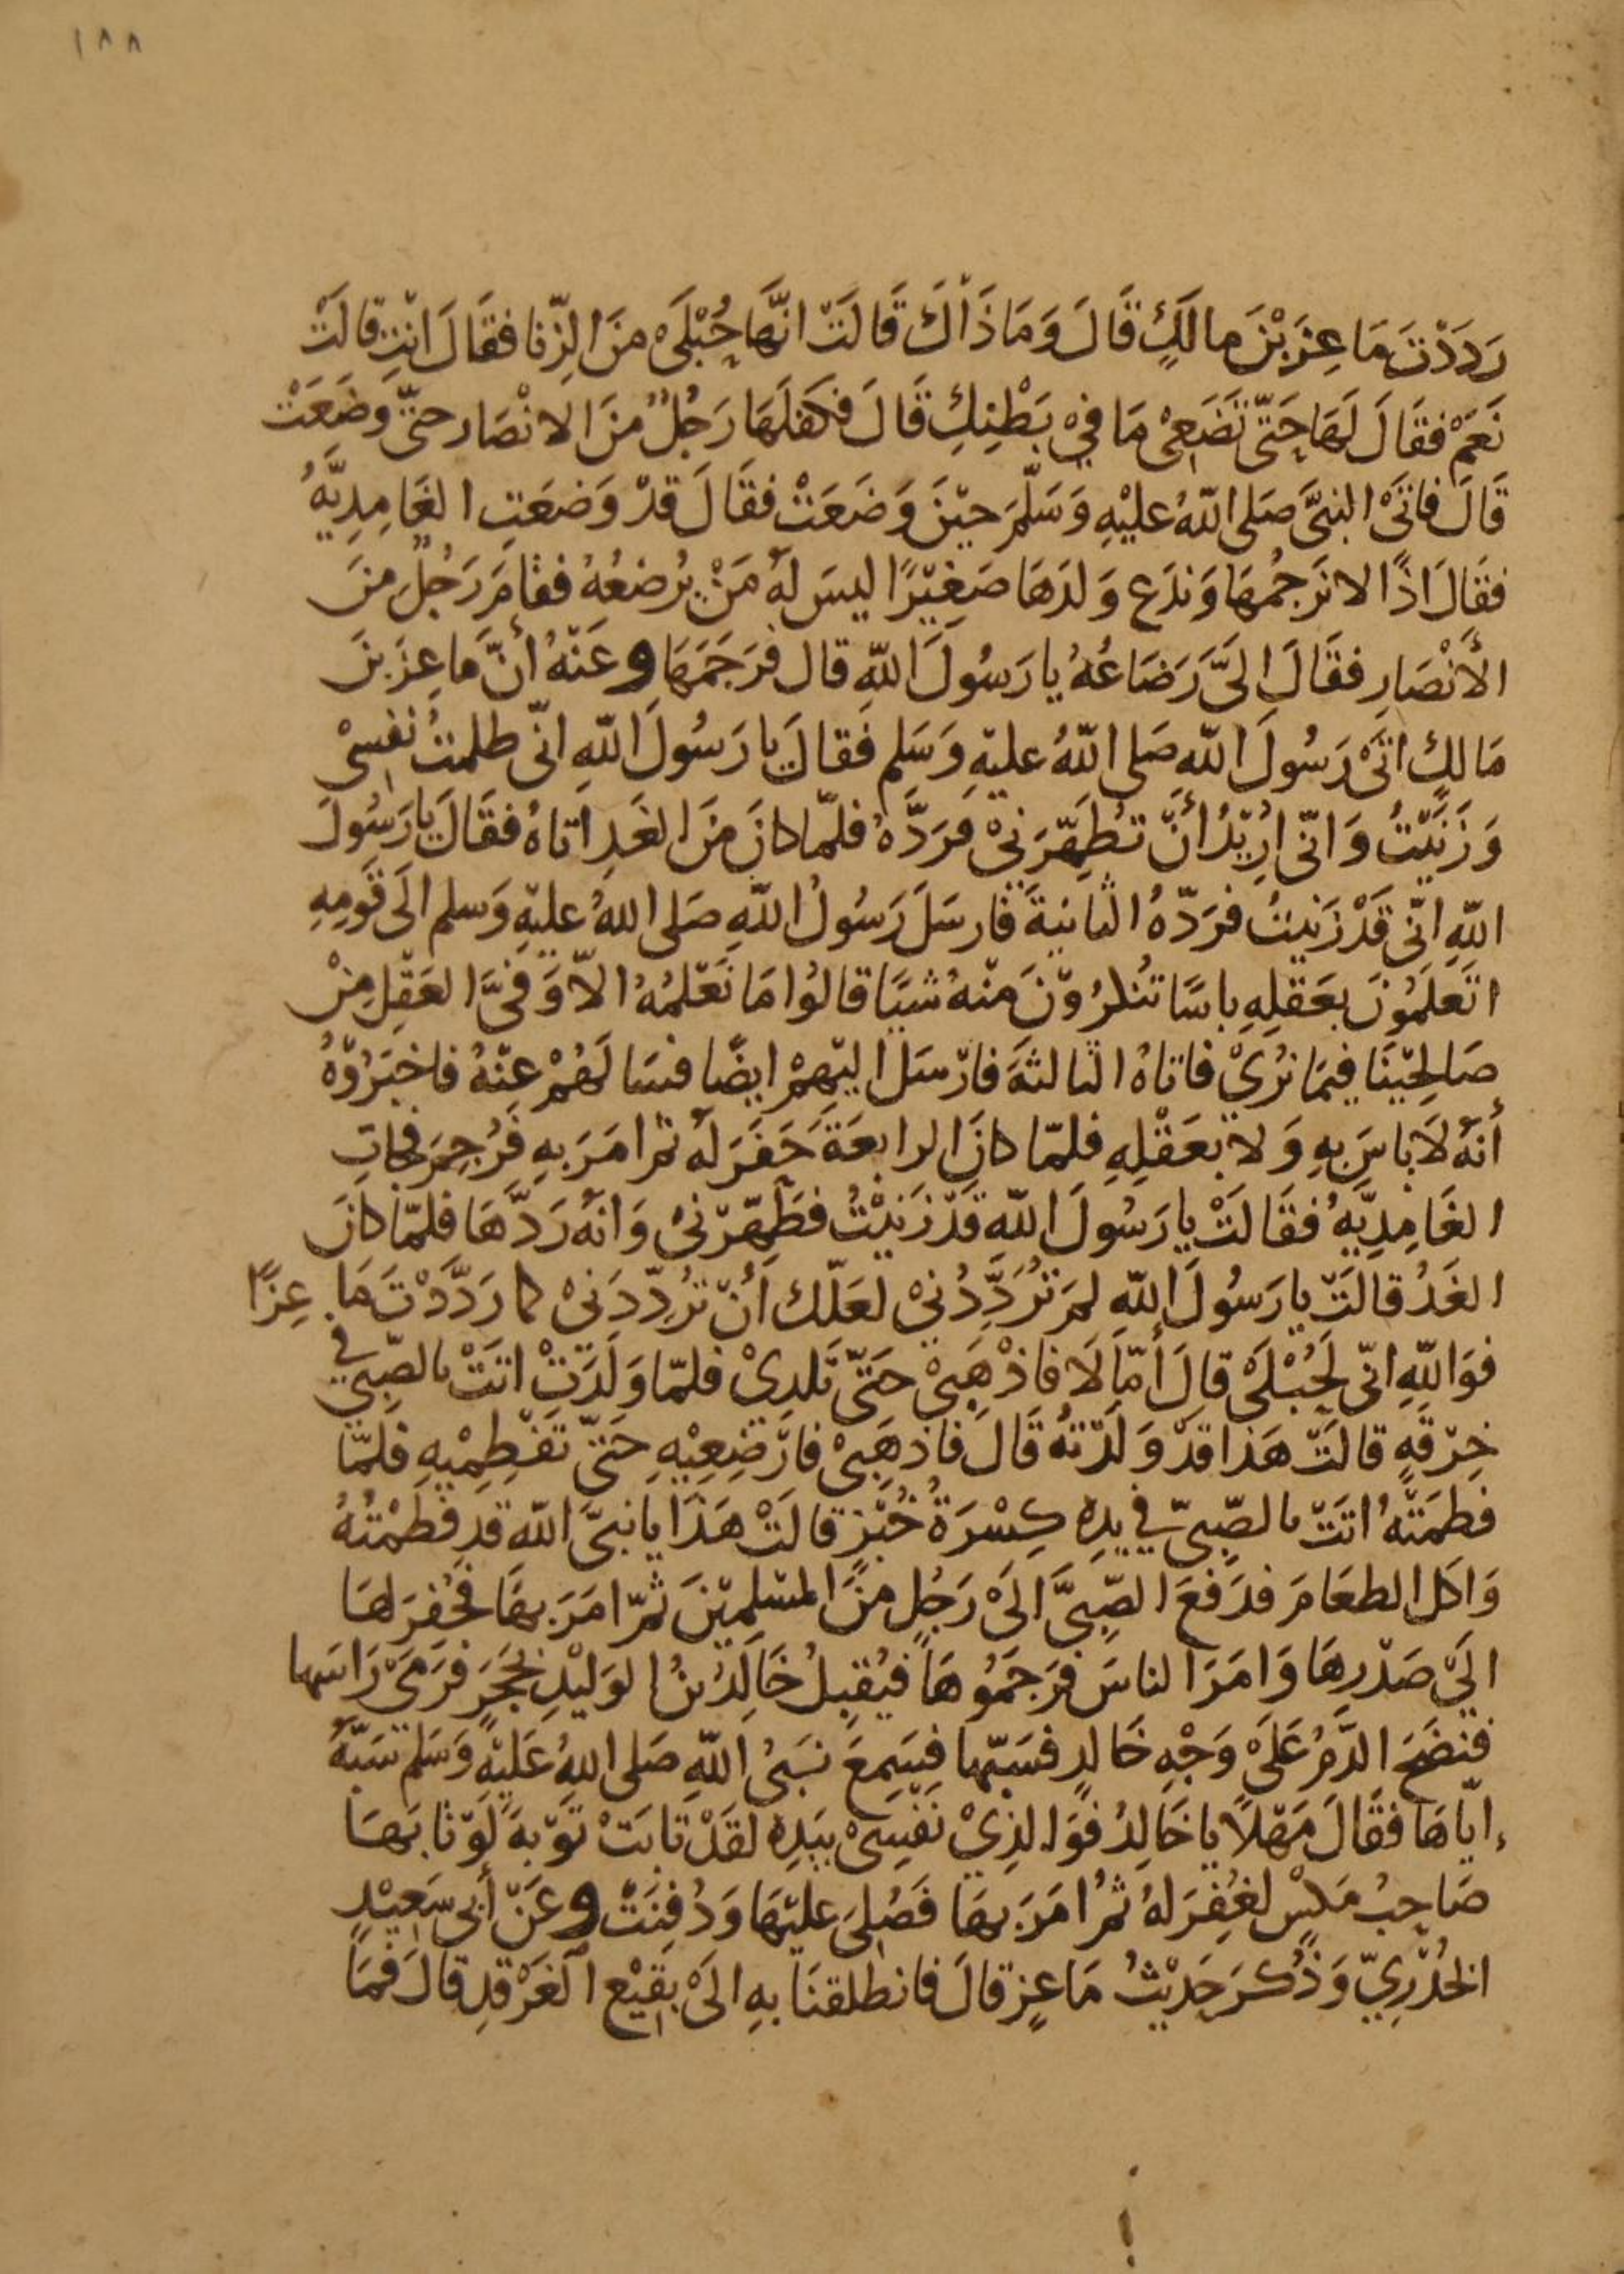 ١٨٨
رَدَدْتَ مَاعِزَ بْنَ مالَكٍ قَالَ وَمَا ذَاكَ قَالَتْ انَّهَا حُبْلَىْ مِنَ الزِّنا فقَالَ انْتِ قالَتْ
نَعَمْ فقَالَ لَهَا حَتّىَ تَضَعِىْ مَا فِيْ بَطْنِكِ قَالَ فكفَلَهَا رَجُلٌ مِنَ الانْصَار حتّىَ وَضَعَتْ
قَالَ فاتَىْ النبىَّ صَلى اللّهُ عليْهِ وَسَلَّمَ حيْنَ وَضَعَتْ فقَالَ قدْ وَضعَتِ الغَامِدِيَّهُ
فقَالَ اذًا لا نَرجُمُهَا وَندَع وَلدَهَا صَغِيْرًا ليسَ لهُ مَنْ يُرضعُهُ فقامَ رَجُلٌ مِنَ
الأَنْصَارِ فقَالَ الىَّ رَضَاعُهُ يا رَسُولَ اللّهِ قال فرَجَمَهَا وعَنْهُ أنَّ مَاعِزَ بنَ
مَالكٍ اتَىْ رَسُولَ اللّه صَلى اللّهُ عليْهِ وَسَلم فقالَ يا رَسُولَ اللّهِ انّى ظلمتُ نفسِىْ
وَزَنَيْتُ وَانّى ارُيْدُ أنْ تُطَهِّرَنىْ فرَدَّهُ فلمّا كانَ مِنَ الغَدِ اتاهُ فقَالَ يا رَسُولَ
اللّهِ انّى قَدْ زَنيتُ فرَدّهُ الثانيةَ فارسَلَ رَسُولُ اللّهِ صَلى اللهُ عليْهِ وَسلم الَى قَومِهِ
اتَعلَمُونَ بعَقلِهِ باسًا تُنكرُوْنَ مِنْهُ شيًا قالوُا مَا نَعْلمُهُ الاّ وَفىَّ العَقْلِ مِنْ
صَالِحِيْنَا فيمَا نُرىْ فاتاهُ الثالثهَ فارْسَلَ اليْهِمْ ايضًا فسَالَهُمْ عنْهُ فاخبَرُوْهُ
أنهُ لَا باسَ بهِ وَلا بعَقْلِهِ فلمّا كانَ الرابعَةَ حَفَرَ لهُ ثمّ امَرَ بهِ فَرُجِمَ فجاتِ
الغَامِدِيَّهُ فقَالَتْ يا رَسُولَ اللّهِ قَدْ زَنيْتُ فطَهّرْنىْ وَانهُ رَدَّهَا فلمّا كانَ
الغَدُ قالَتْ يا رَسُولَ اللّهِ لِمَ تَرُدَّدُنىْ لعَلّكَ أنْ تُرَدِّدَنىْ كما رَدَّدْتَ مَاعِزًا
فوَاللّهِ انّى لَحُبْلَىْ قالَ أمّا لَا فاذْهَبىْ حَتّىَ تَلدِىْ فلمّا وَلَدَتْ اتتَتْ بالصّبىّ فى
خِرْقهٍ قالَتْ هَذا قدْ وَلَدْتهُ قَالَ فاذهَبىْ فارْضِعِيْهِ حَتّىَ تَفْطِمْيهِ فلمّا
فطمَتْهُ اتَتْ بالصّبىّ فى يدِهِ كِسْرَةُ خُبْزٍ قالَتْ هَذَا يا نبىَّ اللّه قدْ فطَمْتُهُ
وَاكَل الطعَامَ فدَفعَ الصّبىَّ الىَ رَجُلٍ مِنَ المسْلمِيْنَ ثمّ امَرَ بهَا فحُفرَ لهَا
الَى صَدْرِهَا وَامَرَ الناسَ فرَجَمُوهَا فيُقبلُ خَالدُ بنُ الوَليْدِ بحَجَرٍ فرَمَىْ رَاسَها
فنضَحَ الدَّمُ عَلَىْ وَجْهِ خَالدٍ فسَبّها فسَمِعَ نبَىُّ اللّهِ صَلى اللهُ عَليْهِ وَسَلم سَبّهُ
إيّاهَا فقَالَ مَهْلاً يا خَالدُ فوَالذِىْ نَفْسِىْ بيَدِه لقَدْ تابَتْ توْبهً لَوْ تابَهَا
صَاحِبُ مَكسٍ لغُفِرَ لهُ ثمُ امَرَ بهَا فَصُلىَ عليْهَا وَدُفِنَتْ وعَنْ أبى سَعيْدٍ
الخُدْرِيّ وَذُكرَ حَديْثُ مَاعزٍ قالَ فانطلقنَا بهِ الىَ بقيْع الغَرْقدِ قالَ فمَا